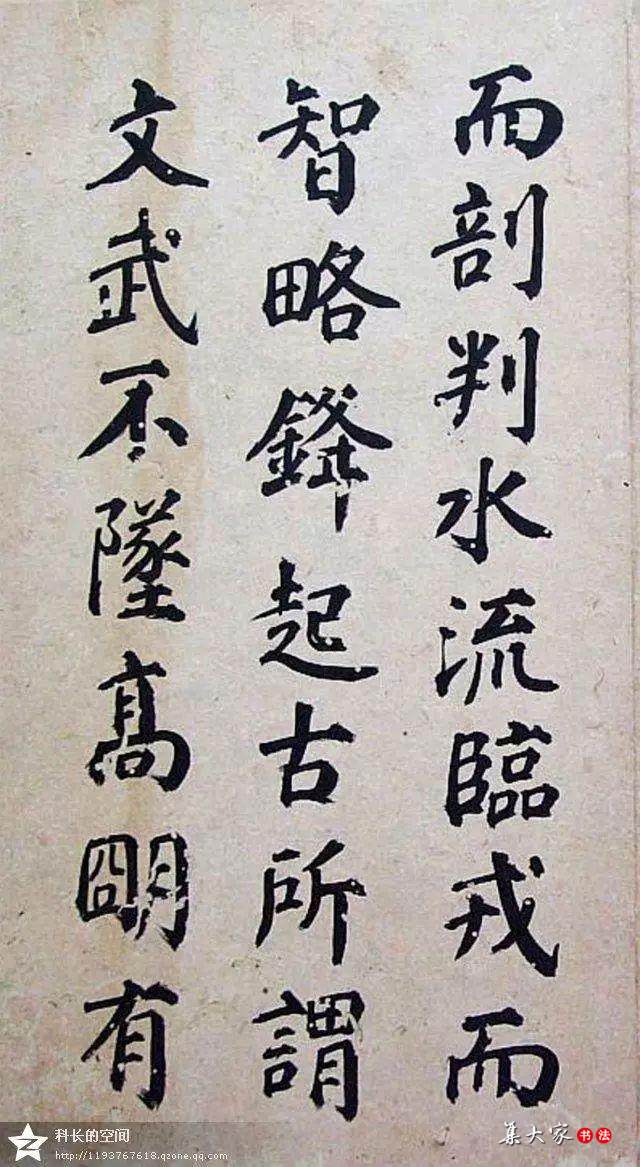 而剖判水流臨戎而
智略鋒起古所謂
文武不墜高朙有
科长的空间
http://1193767618.qzone.qq.com
集大家书法